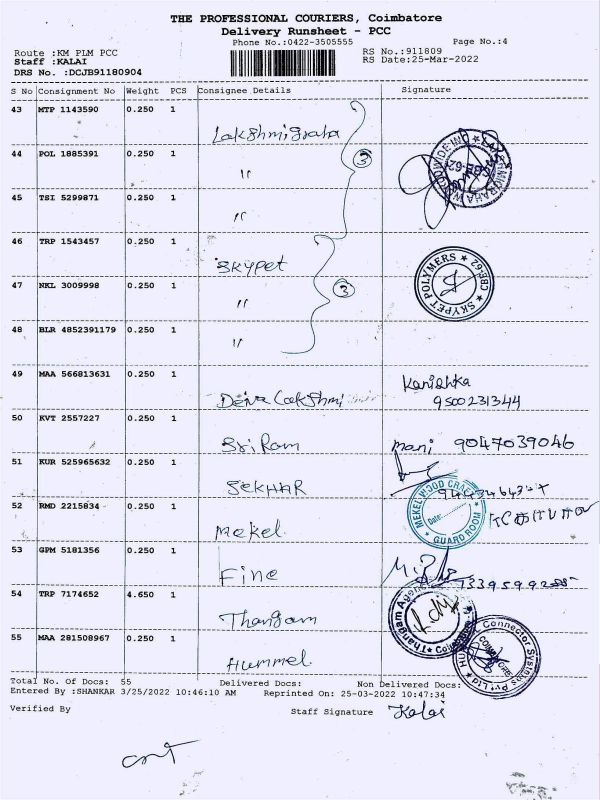 THE PROFESSIONAL COURIERS, Coimbatore
Delivery Runsheet - PCC
Phone No.:0422-3505555 Page No.:4
Route :KM PLM PCC RS No.:911809
Staff :KALAI RS Date:25-Mar-2022
DRS No. :DCJB91180904
S No Consignment No Weight PCS Consignee Details Signature
43 MTP 1143590 0.250 1
Lakshmigraha
44 POL 1885391 0.250 1
"
3
45 TSI 5299871 0.250 1
"
46 TRP 1543457 0.250 1
Skypet
SKYPET POLYMERS ★ CBE-29 ★
47 NKL 3009998 0.250 1
"
3
48 BLR 4852391179 0.250 1
"
49 MAA 566813631 0.250 1
Deiva Lakshmi Kanishka
9500231344
50 KVT 2557227 0.250 1
Sri Ram mani 9047039046
51 KUR 525965632 0.250 1
SEKHAR
52 RMD 2215834 0.250 1
Mekel
MEKEL WOOD CRAFT
Date:
★ GUARD ROOM ★
53 GPM 5181356 0.250 1
Fine
54 TRP 7174652 4.650 1
Thangam
Thangam
55 MAA 281508967 0.250 1
Hummel
Connector Systems Pvt Ltd
Total No. Of Docs: 55 Delivered Docs: Non Delivered Docs:
Entered By :SHANKAR 3/25/2022 10:46:10 AM Reprinted On: 25-03-2022 10:47:34
Verified By Staff Signature Kalai